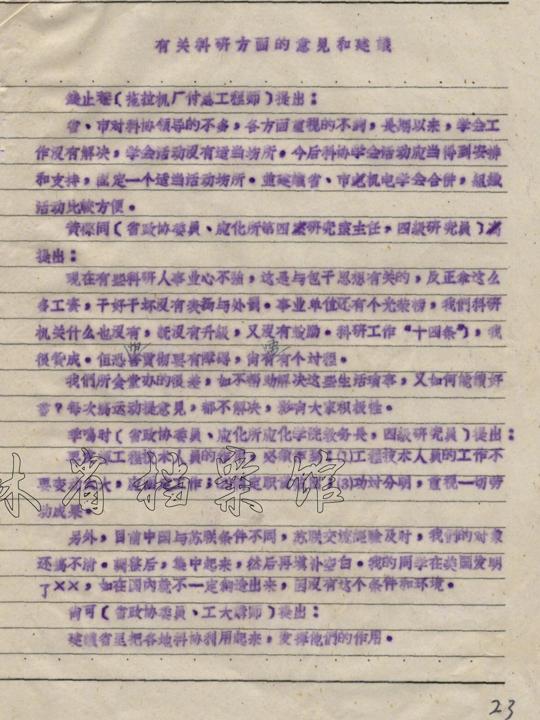 有关科研方面的意见和建议
钱止(拖拉机厂付总工程师)提出:
省、市对科协领导的不多,各方面重视的不到,是期以来,学会工
作没有解决,学会活动没有适当场所。今后科协学会活动应当得到安排
和支持,固定一个适当活动场所。并建议省、市把机电学会合併,组织
活动比较方便。
(省政协委员、应化所第四研究室主任,四级研究员)
提出:
现在有些科研人事业心不强,这是与包干思想有关的,反正拿这么
多工资,干好干坏没有表扬与处罚。事业单位还有个光荣榜,我们科研
机关什么也没有,既没有升级,又没有鼓励。科研工作“十四条”,我
很赞成。但恐怕贯彻要有障碍,需有个过程。
我们所食堂办的很差,如不帮助解决这些生活琐事,又如何能读好
书?每次搞运动提意见,都不解决,影响大家积极性。
李鸣时(省政协委员、应化所应化学院教务长,四级研究员)提出:
工程技术人员的,必须(1)工程技术人员的工作不
要变动大,工作;(2)定职(3)功过分明,重视一切劳
动成果。
另外,目前中国与苏联条件不同,苏联交流经验及时,我们的对象
还搞不清。调整后,集中起来,然后再填补空白。我的同学在美国发明
了××,如在国内就不一定制造出来,因没有这个条件和环境。
尚可(省政协委员、工大讲师)提出:
建议省里把各地科协利用起来,发挥他们的作用。
林省档案馆
23